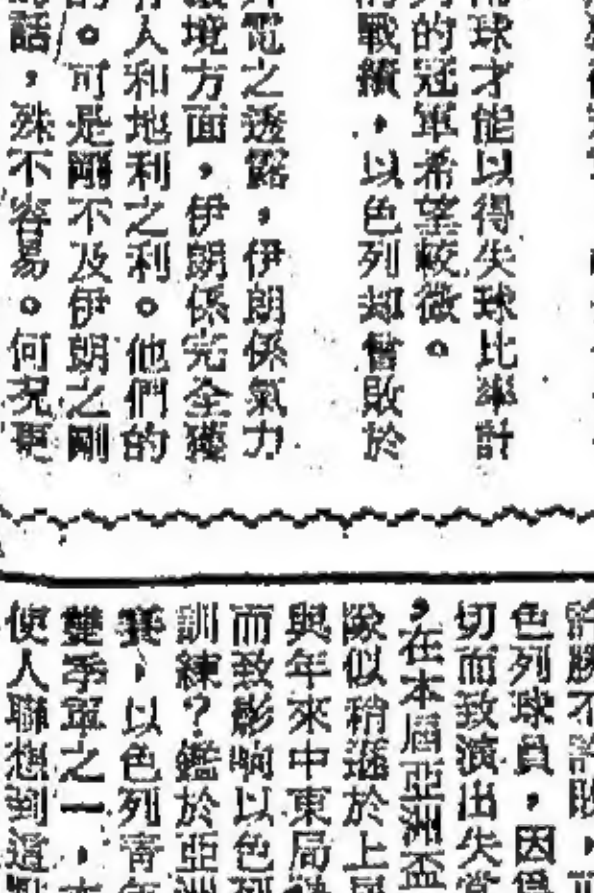 球才能以得失球比率計
的冠軍希望較微。
戰績,以色列却曾敗於
電之透露,伊朗係氣力
境方面,伊朗係完全獲
人和地利之利。他們的
。可是剛不及伊朗之剛
話,殊不容易。何況更
許勝不許敗,
色列球員,因爲
切而致演出失常
,在本屆亞洲盃
隊似稍遜於上屆
與年來中東局勢
而致影响以色列
訓練?鑑於亞洲
賽,以色列青年
雙季軍之一,
使人聯想到這點